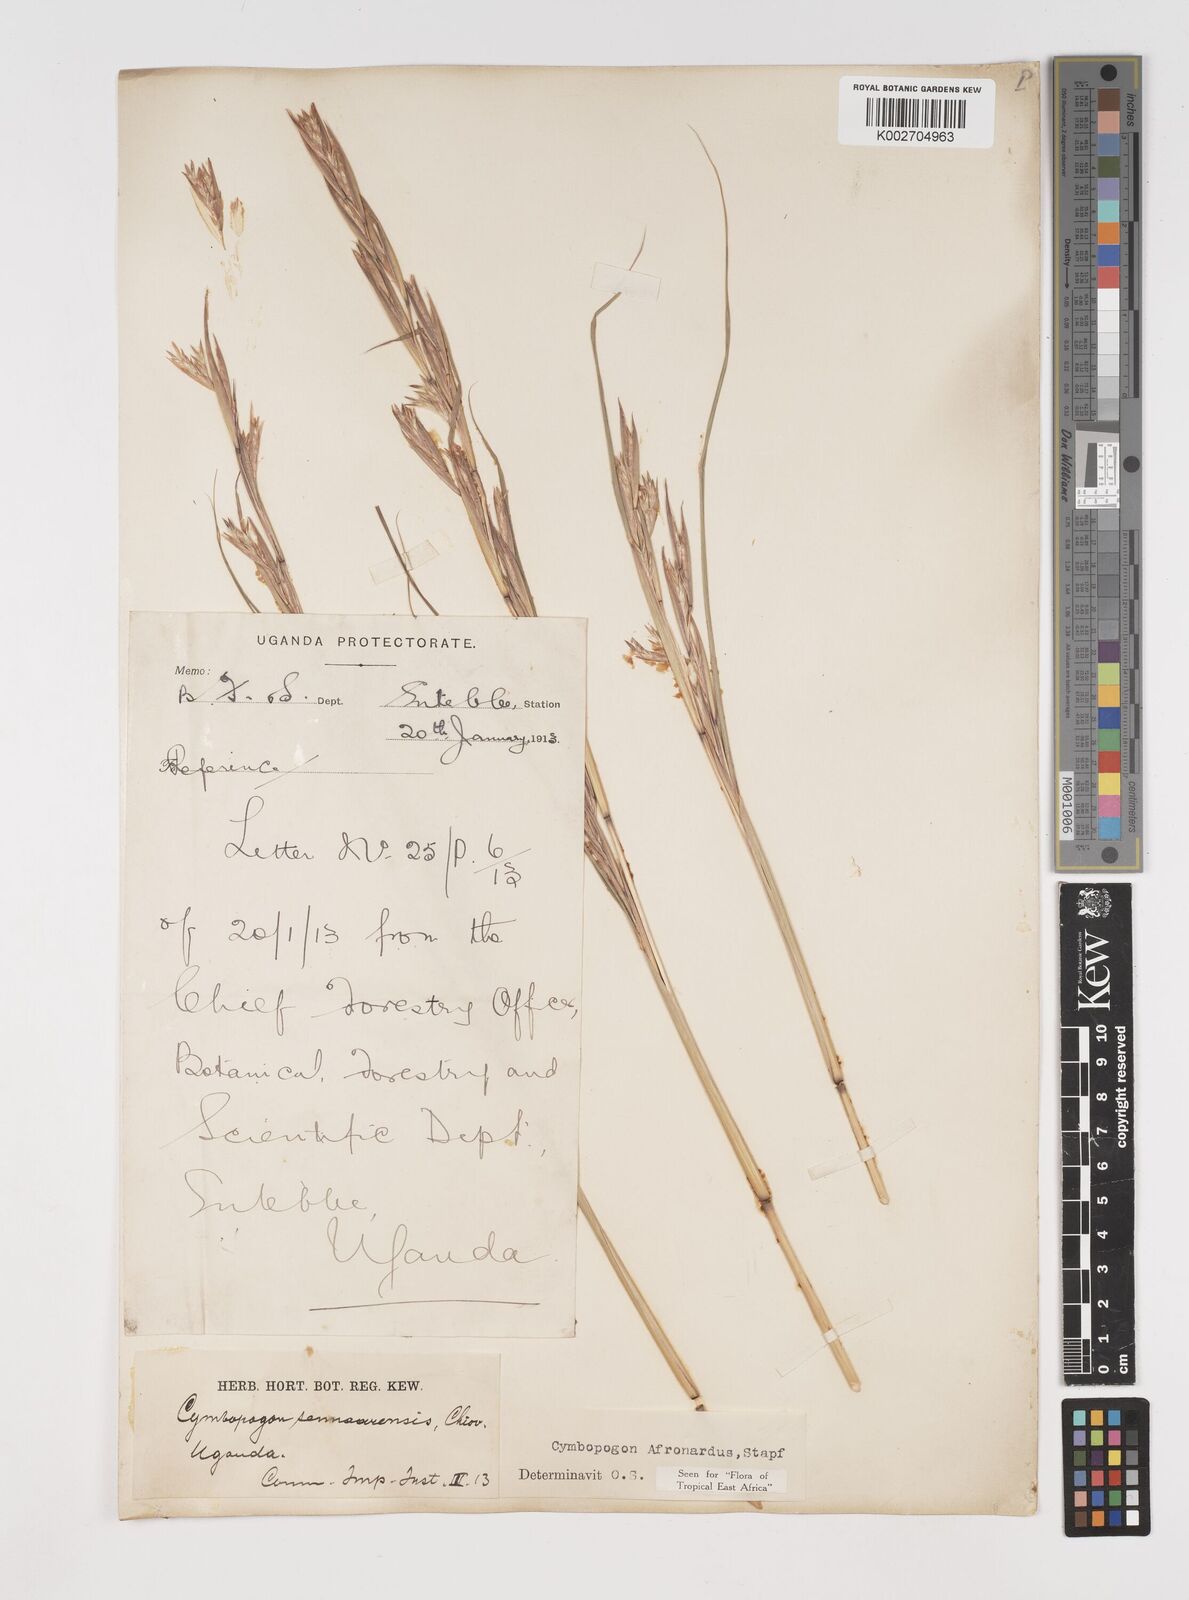 P
ROYAL BOTANIC GARDENS KEW
K002704963
UGANDA PROTECTORATE.
Memo:
B. F. & S. Dept.
Entebbe, Station
20th January, 1913.
Reference
Letter No. 25/P. 6/13
of 20/1/13 from the
Chief Forestry Officer,
Botanical, Forestry and
Scientific Dept.,
Entebbe,
Uganda.
HERB. HORT. BOT. REG. KEW.
Cymbopogon sennaarensis, Chiov.
Uganda.
Comm. Imp. Inst. II. 13
Cymbopogon Afronardus, Stapf
Determinavit O.S.
Seen for "Flora of
Tropical East Africa"
inches
Density
Don Williams
centimeters
M001006
Kew
Royal Botanic Gardens
copyright reserved
0 1 2 3 4 5 6 7 8 9 10
cm